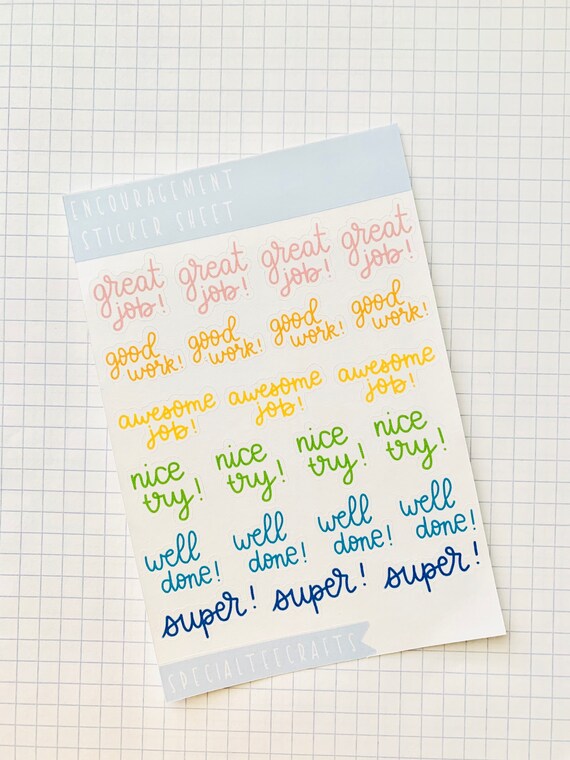 ENCOURAGEMENT
STICKER SHEET
great great great great
job! job! job! job!
good good good good
work! work! work! work!
awesome awesome awesome
job! job! job!
nice nice nice nice
try! try! try! try!
well well well well
done! done! done! done!
super! super! super!
SPECIALTEECRAFTS